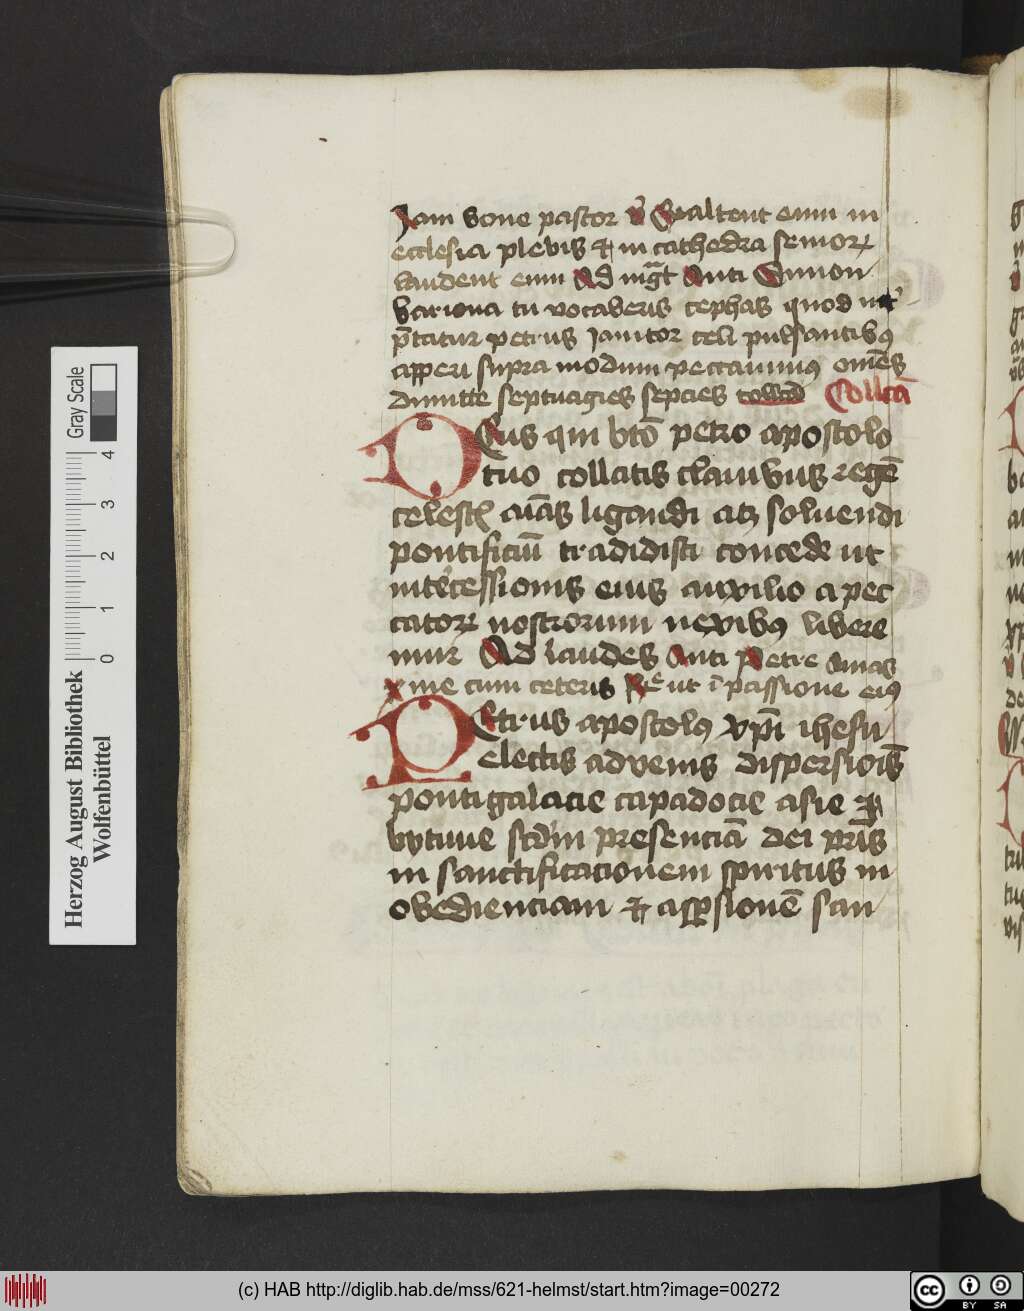 Iam bone pastor v̉ Exaltent eum in
ecclesia plebis et in cathedra senioꝝ
laudent eum Ad mgͣt Anti Simon
bariona tu vocaberis cephas quod int̾
p̄tatur petrus Ianitor celi pulsantibꝰ
apperi supra modum peccauimꝰ om̄es
dimitte septuagies sepcies Coll̄ca
Deus qui bt̄o petro apostolo
tuo collatis clauibus regē
celestꝭ aīas ligandi atqꝫ soluendi
pontificiū tradidisti concede ut
intercessionis eius auxilio a pec
catoꝝ nostrorum nexibꝰ libere
mur Ad laudes Anti Petre amas
me cum ceteris Rͤ ut ī passione eiꝰ
Petrus apostolꝰ xp̄i ihesu
electis advenis dispersiōis
ponti galacie capadocie asie et
bytinie scd̄m presenciā dei pr̄is
in sanctificacionem spiritus in
obedienciam et asp̲sionē san
Herzog August Bibliothek
Wolfenbüttel
0 1 2 3 4
Gray Scale
(c) HAB http://diglib.hab.de/mss/621-helmst/start.htm?image=00272
cc BY SA